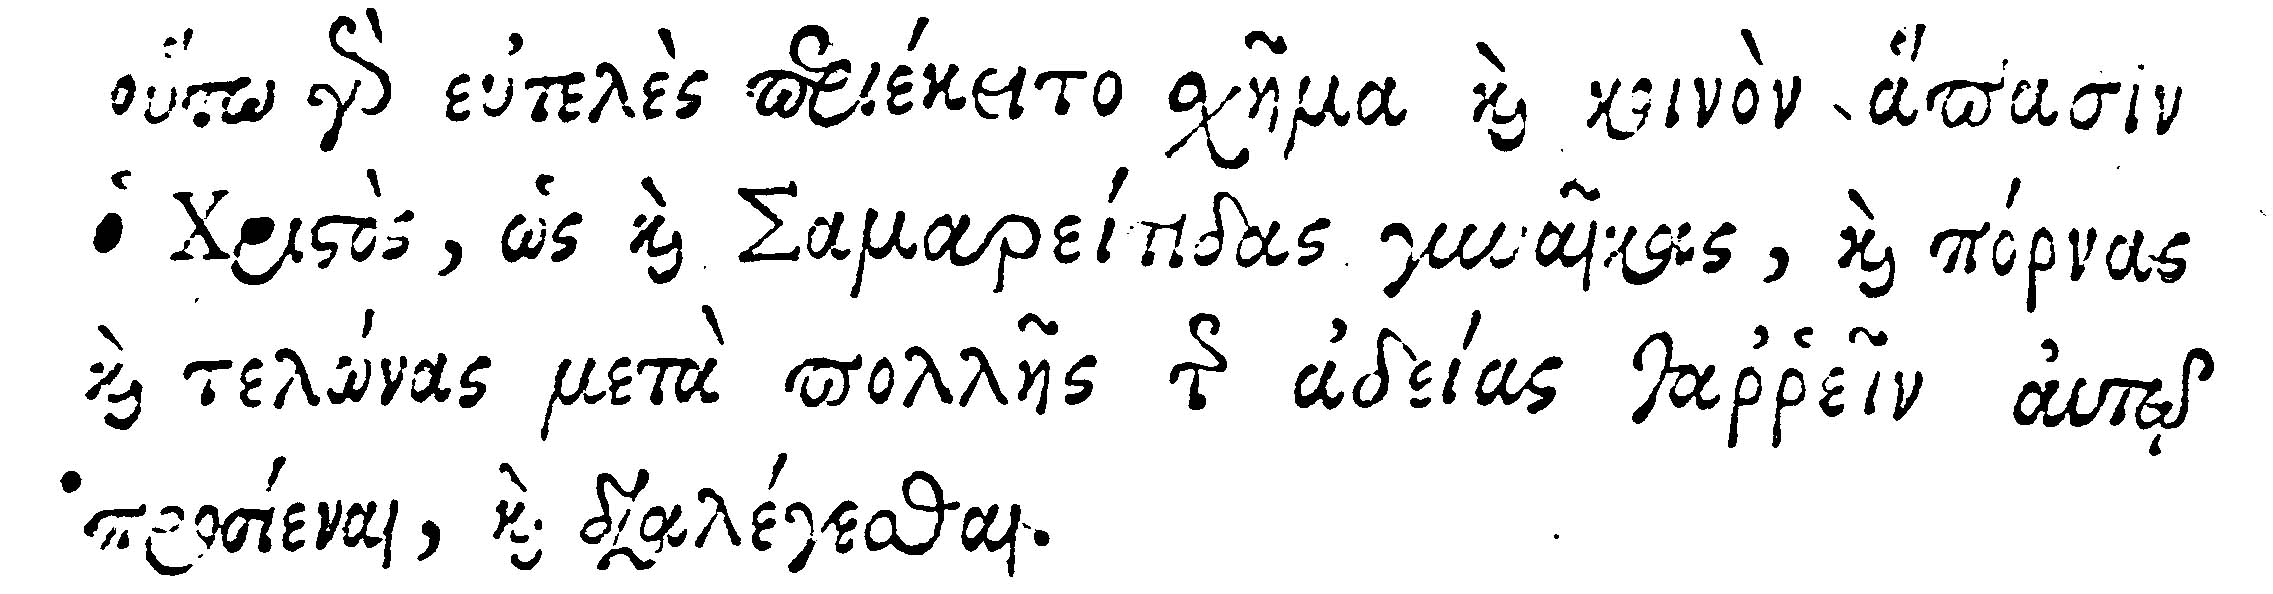 οὕτω γὰρ εὐτελὲς περιέκειτο σχῆμα καὶ κοινὸν ἅπασιν
ὁ Χριστὸς, ὡς καὶ Σαμαρείτιδας γυναῖκας, καὶ πόρνας
καὶ τελώνας μετὰ πολλῆς τῆς ἀδείας θαῤῥεῖν αὐτῷ
προσιέναι, καὶ διαλέγεσθαι.